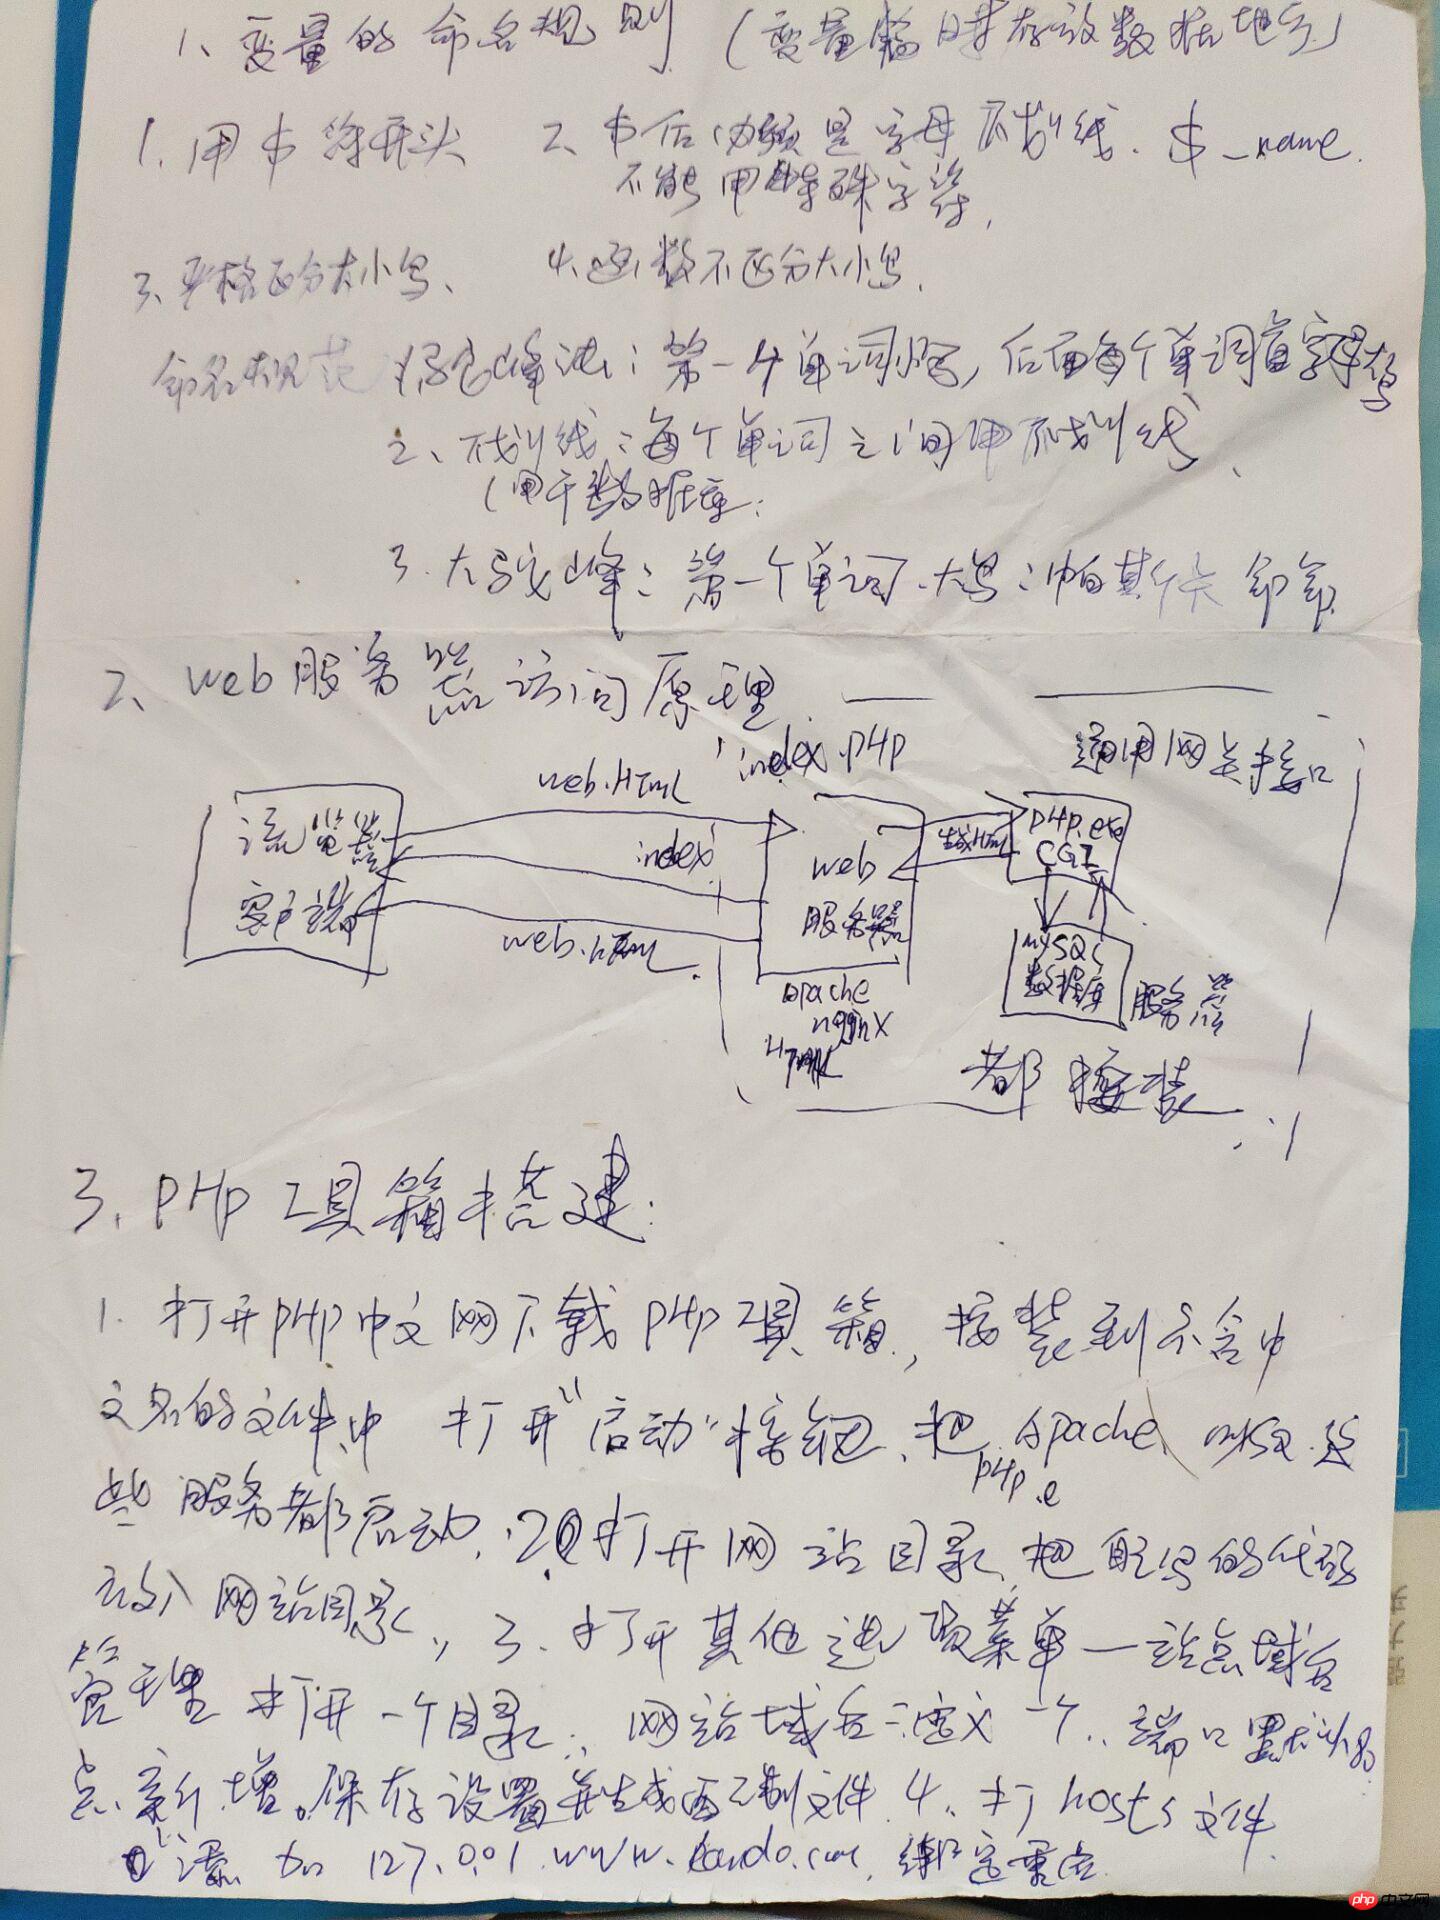 1、变量的命名规则 (变量临时存放数据地方)
1. 用$符开头 2、$后必须是字母下划线. $_name.
不能用特殊字符,
3、严格区分大小写、 4、函数不区分大小写.
命名规范 1、驼峰法: 第一个单词小写, 后面每个单词首字母大写
2、下划线: 每个单词之间用下划线、
(用于数据库:
3. 大驼峰: 第一个单词.大写: 帕斯卡命名
2、web服务器访问原理
index.PHP 通用网关接口
web.HTml
浏览器 index web 生成HTml PHP.exe
CGI
客户端 服务器
web.html mySQL
数据库 服务器
apache
nginx
都接装
3. PHP工具箱搭建:
1. 打开PHP中文网下载PHP工具箱, 按装到不含中
文名的文件中 打开"启动"按钮, 把Apache、mySQ 这
PHP.e
些服务都启动, 2 打开网站目录, 把配写的代码
放入网站目录, 3. 打开其他选项菜单一站点域名
管理 打开一个目录; 网站域名 定义一个, 端口默认80
点.新增。保存设置并生成配制文件 4. 打hosts文件
添加 127.0.01 www. 绑定重启